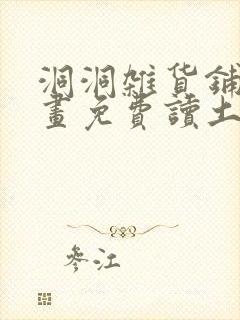 洞洞雜貨鋪
畫免費讀土
參江